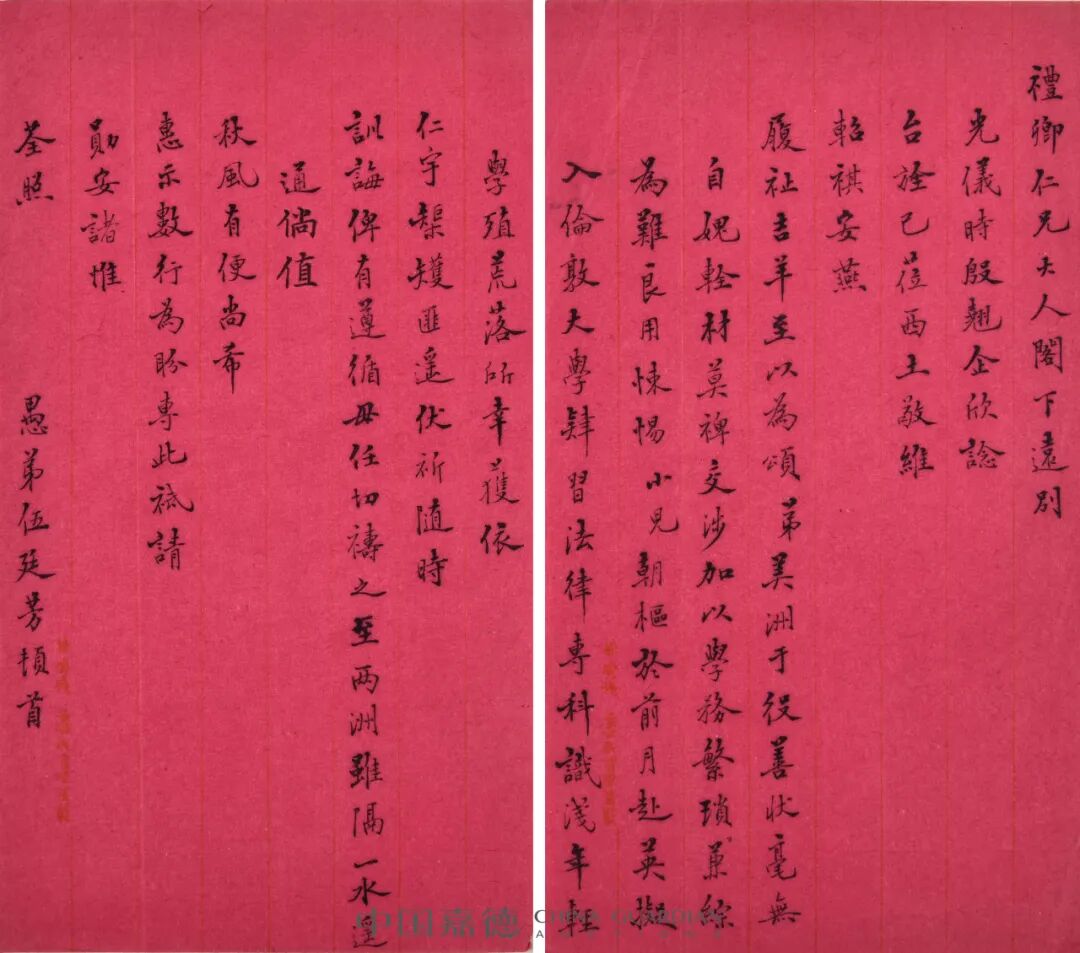 禮卿仁兄大人閣下遠別
光儀時殷翹企欣諗
台旌已莅西土敬維
軺祺安燕
履祉吉羊至以為頌弟美洲于役善狀毫無
自媿輇材莫裨交涉加以學務繁瑣兼綜
為難良用悚惕小兒朝樞於前月赴英擬
入倫敦大學肄習法律專科識淺年輕
學殖荒落所幸獲依
仁宇榘矱匪遥伏祈随時
訓誨俾有遵循毋任切禱之至两洲雖隔一水遥
通倘值
秋風有便尚希
惠示數行為盼専此祗請
勛安諸惟
荃照
愚弟伍廷芳頓首
中国嘉德 CHINA GUARDIAN